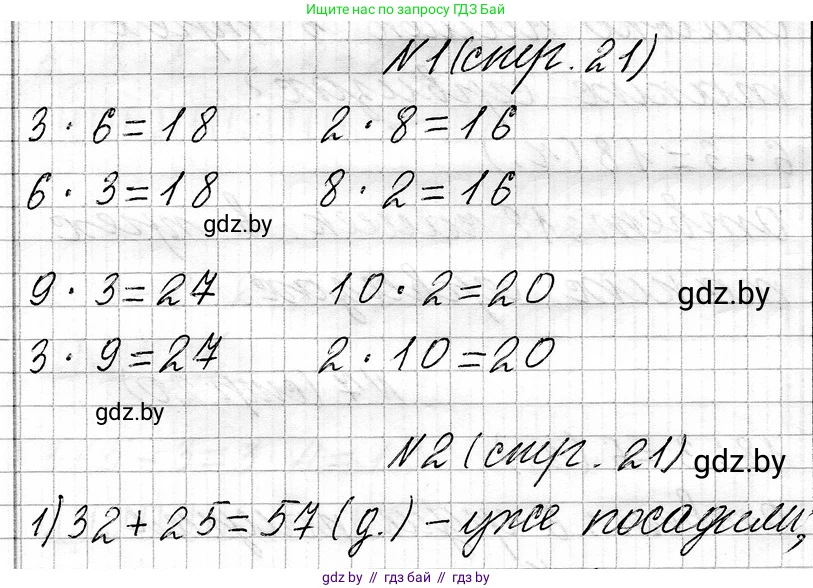 Ищите нас по запросу ГДЗ Бай
N1 (стр. 21)
3 · 6 = 18 2 · 8 = 16
6 · 3 = 18 8 · 2 = 16
gdz.by
9 · 3 = 27 10 · 2 = 20
gdz.by
3 · 9 = 27 2 · 10 = 20
gdz.by
N2 (стр. 21)
gdz.by
1) 32 + 25 = 57 (д.) – уже посадили;
gdz.by // гдз бай // gdz.by